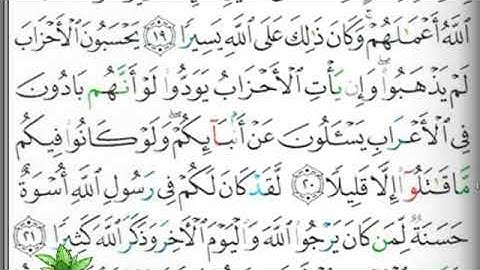 ٱللَّهُ أَعْمَٰلَهُمْ ۚ وَكَانَ ذَٰلِكَ عَلَى ٱللَّهِ يَسِيرًا ١٩ يَحْسَبُونَ ٱلْأَحْزَابَ
لَمْ يَذْهَبُوا۟ ۖ وَإِن يَأْتِ ٱلْأَحْزَابُ يَوَدُّوا۟ لَوْ أَنَّهُم بَادُونَ
فِى ٱلْأَعْرَابِ يَسْـَٔلُونَ عَنْ أَنۢبَآئِكُمْ ۖ وَلَوْ كَانُوا۟ فِيكُم
مَّا قَٰتَلُوٓا۟ إِلَّا قَلِيلًا ٢٠ لَّقَدْ كَانَ لَكُمْ فِى رَسُولِ ٱللَّهِ أُسْوَةٌ
حَسَنَةٌ لِّمَن كَانَ يَرْجُوا۟ ٱللَّهَ وَٱلْيَوْمَ ٱلْءَاخِرَ وَذَكَرَ ٱللَّهَ كَثِيرًا ٢١